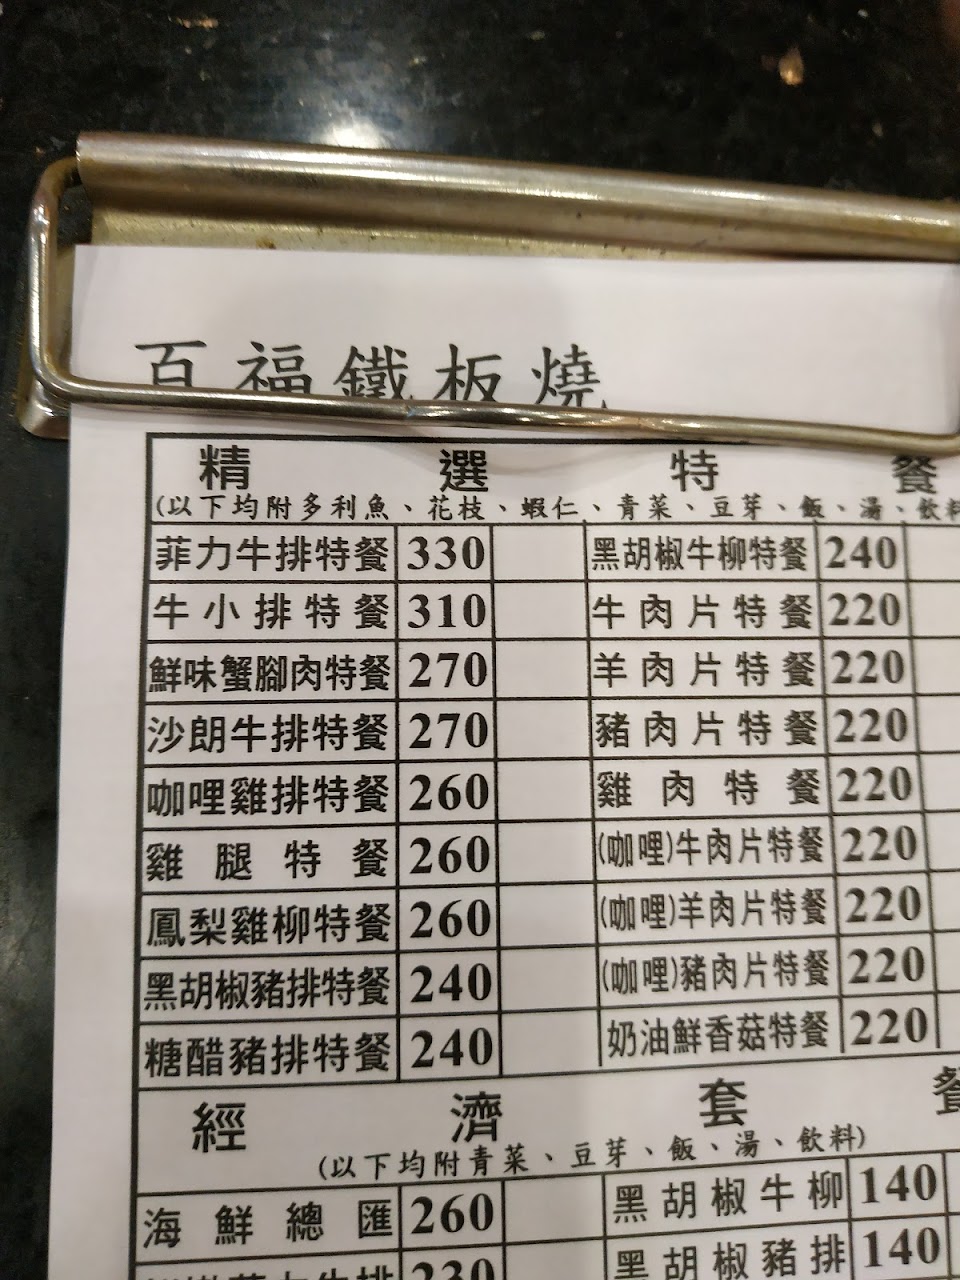 百福鐵板燒
精選特餐
(以下均附多利魚、花枝、蝦仁、青菜、豆芽、飯、湯、飲料
菲力牛排特餐 330 黑胡椒牛柳特餐 240
牛小排特餐 310 牛肉片特餐 220
鮮味蟹腳肉特餐 270 羊肉片特餐 220
沙朗牛排特餐 270 豬肉片特餐 220
咖哩雞排特餐 260 雞肉特餐 220
雞腿特餐 260 (咖哩)牛肉片特餐 220
鳳梨雞柳特餐 260 (咖哩)羊肉片特餐 220
黑胡椒豬排特餐 240 (咖哩)豬肉片特餐 220
糖醋豬排特餐 240 奶油鮮香菇特餐 220
經濟套餐
(以下均附青菜、豆芽、飯、湯、飲料)
海鮮總匯 260 黑胡椒牛柳 140
牛排 230 黑胡椒豬排 140